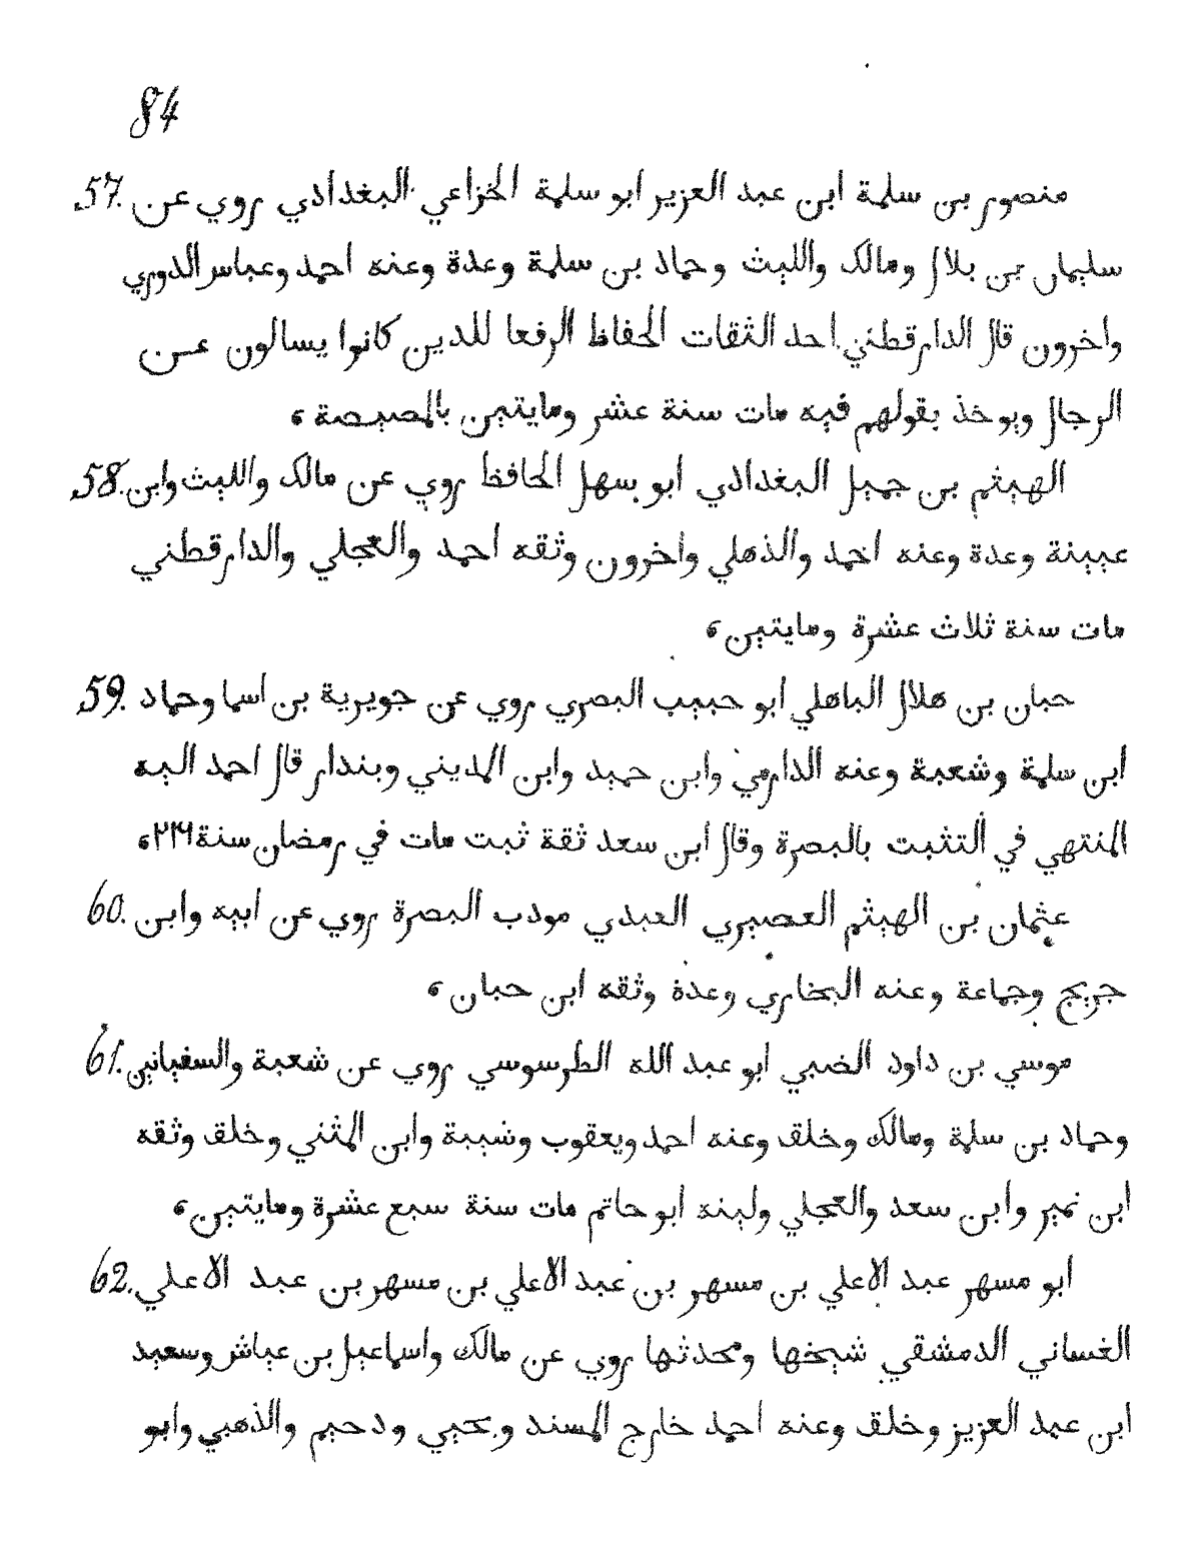 84
57. منصور بن سلمة ابن عبد العزير ابو سلمة الخزاعي البغدادي روي عن
سليمان بن بلال ومالك والليث وحماد بن سلمة وعدة وعنه احمد وعباس الدوري
واخرون قال الدارقطني احد الثقات الحفاظ الرفعا للدين كانوا يسالون عن
الرجال ويوخذ بقولهم فيه مات سنة عشر ومايتين بالمصيصة
58. الهيثم بن جميل البغدادي ابو سهل الحافظ روي عن مالك والليث وابن
عيينة وعدة وعنه احمد والذهلي واخرون وثقه احمد والعجلي والدارقطني
مات سنة ثلاث عشرة ومايتين
59. حبان بن هلال الباهلي ابو حبيب البصري روي عن جويرية بن اسما وحماد
ابن سلمة وشعبة وعنه الدارمي وابن حميد وابن المديني وبندار قال احمد اليه
المنتهي في التثبت بالبصرة وقال ابن سعد ثقة ثبت مات في رمضان سنة
60. عثمان بن الهيثم العصيري العبدي مودب البصرة روي عن ابيه وابن
جريج وجماعة وعنه البخاري وعدة وثقه ابن حبان
61. موسي بن داود الضبي ابو عبد الله الطرسوسي روي عن شعبة والسفيانين
وحماد بن سلمة ومالك وخلق وعنه احمد ويعقوب وشيبة وابن المثني وخلق وثقه
ابن نمير وابن سعد والعجلي ولينه ابو حاتم مات سنة سبع عشرة ومايتين
62. ابو مسهر عبد الاعلي بن مسهر بن عبد الاعلي بن مسهر بن عبد الاعلي
الغساني الدمشقي شيخها ومحدثها روي عن مالك واسماعيل بن عياش وسعيد
ابن عبد العزيز وخلق وعنه احمد خارج المسند ويحيي ودحيم والذهبي وابو